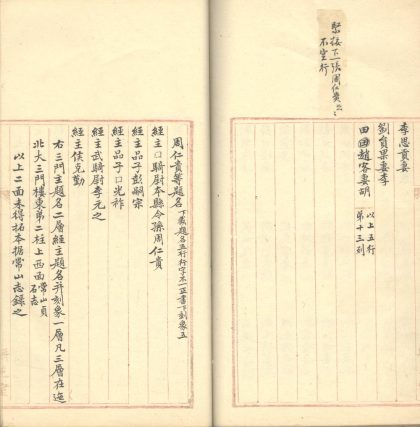 緊接下一張周仁貴云云
不空行
李思貢妻
劉貟果妻李
田國趙客妻胡
以上五行
第十三列
周仁貴等題名
下截題名五行行字不一正書下刻象五
經主口騎尉本縣令孫周仁貴
經主品子彭嗣宗
經主品子口光祚
經主武騎尉李元之
經主侯克勤
右三門主題名二層經主題名并刻象一層凡三層在造
北大三門樓東第二柱上西面
常山貞
石志
以上二面未得拓本据常山志錄之